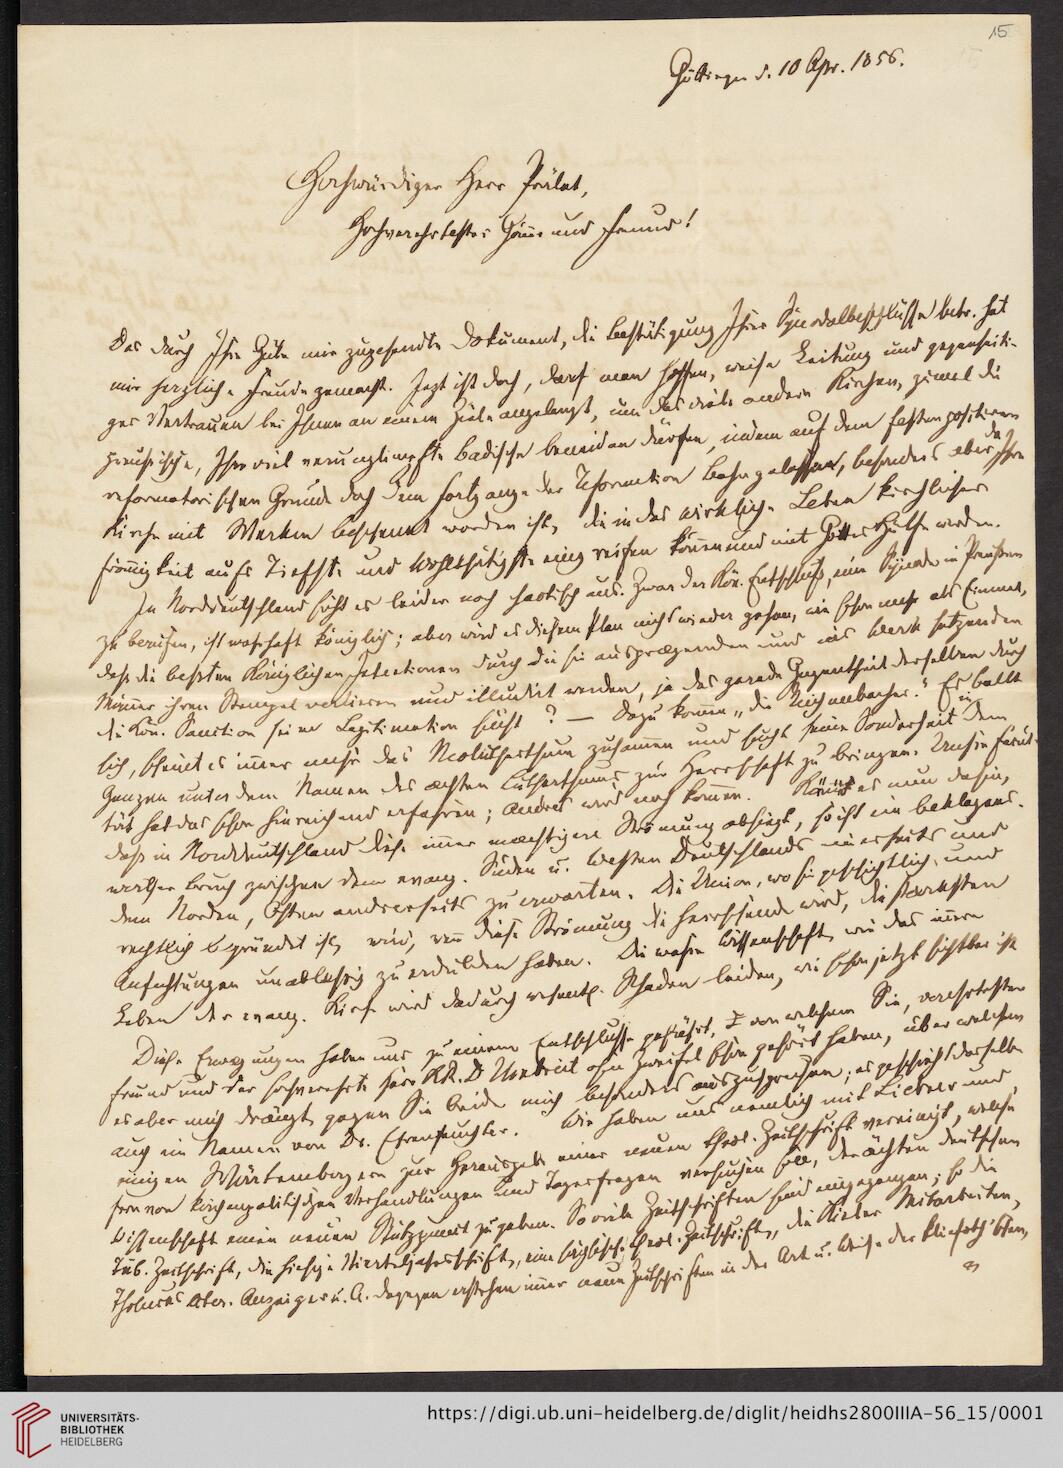 15
Göttingen d. 10 Apr. 1856.
Hochwürdiger Herr Prälat,
Hochverehrtester Gönner und Freund!
Das durch Ihre Güte mir zugesendte Dokument, die Bestätigung Ihrer Synodalbeschlüsse betr. hat
mir herzliche Freude gemacht. Jetzt ist doch, darf man hoffen, weise Leitung und gegenseiti-
ges Vertrauen bei Ihnen an einem Ziele angelangt, um das viele andere Kirchen, zumal die
preußische, Ihre viel verunglimpfte badische beneiden dürfen, indem auf dem festen positiven
reformatorischen Grunde doch dem Fortgange der Reformation Bahn gelassen, besonders aber daß Ihre
Kirche mit Werken beschenkt worden ist, die in das wirkliche Leben kirchlicher
Frömmigkeit aufs Tiefste und Wohlthätigste eingreifen können und mit Gottes Hülfe werden.
In Norddeutschland sieht es leider noch chaotisch aus. Zwar der Kön. Entschluß, eine Synode in Preußen
zu berufen, ist wahrhaft königlich; aber wird es diesem Plan nicht wieder gehen, wie schon mehr als Einmal,
daß die besten Königlichen Intentionen durch die sie ausprægenden und ins Werk setzenden
Männer ihren Stempel verlieren und illudirt werden, ja das gerade Gegentheil derselben durch
die Kön. Sanction seine Legitimation sucht? — Dazu kommen „die Reichenbacher." Es ballt
sich, scheint es immer mehr das Neolutherthum zusammen und sucht seine Sonderheit in dem
Ganzen unter dem Namen des ächten Lutherthums zur Herrschaft zu bringen. Unsre Facul-
tät hat das schon hinreichend erfahren; Andres wird noch kommen. Kömmt es nun dahin,
daß in Norddeutschland diese immer mæchtigere Strömung obsiegt, so ist ein beklagens-
werther Bruch zwischen dem evang. Süden u. Westen Deutschlands einerseits und
dem Norden, Osten andrerseits zu erwarten. Die Union, wo sie geschichtlich und
rechtlich begründet ist, wird, wenn diese Strömung die herrschende wird, die stærksten
Anfechtungen unablæssig zu erdulden haben. Die wahre Wissenschaft, wie das innere
Leben der evang. Kirche wird dadurch wesentl. Schaden leiden, wie schon jetzt sichtbar ist
Diese Erwægungen haben uns zu einem Entschlusse geführt, von welchem Sie, verehrtester
Freund und der hochverehrte Herr KR. D Umbreit ohne Zweifel schon gehört haben, über welchen
es aber mich drängt gegen Sie beide mich besonders auszusprechen; es geschieht dasselbe
auch im Namen von Dr. Ehrenfeuchter. Wir haben uns nemlich mit Liebner und
einigen Würtembergern zur Herausgabe einer neuen theol. Zeitschrift vereinigt, welche
fern von kirchenpolitischen Verhandlungen und Tagesfragen versuchen soll, der ächten deutschen
Wissenschaft einen neuen Stützpunct zu geben. So viele Zeitschriften sind eingegangen; so die
Tüb. Zeitschrift, die hiesige Vierteljahrsschrift, eine theol. Zeitschrift, die Kieler Mitarbeiten,
Tholucks liter. Anzeiger u. A. dagegen erstehen immer neue Zeitschriften in der Art u. Weise der Kliefoth'schen,
UNIVERSITÄTS-
BIBLIOTHEK
HEIDELBERG
https://digi.ub.uni-heidelberg.de/diglit/heidhs2800IIIA-56_15/0001